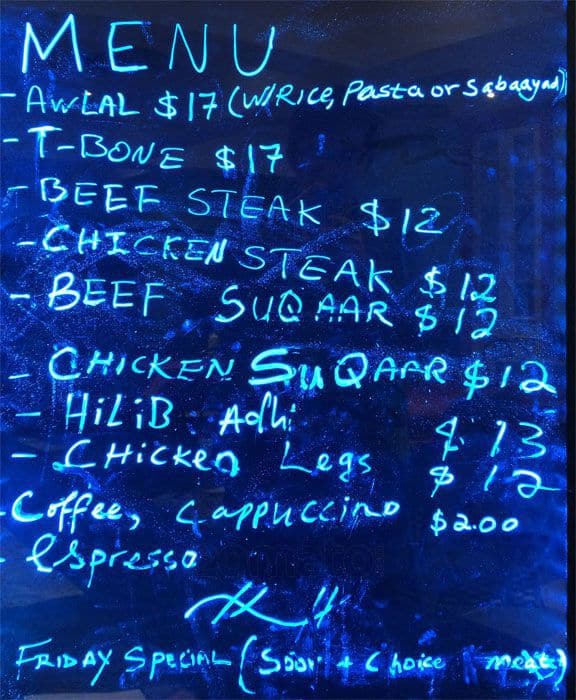 MENU
- AWLAL $17 (W/Rice, Pasta or Sabaayad)
- T-BONE $17
- BEEF STEAK $12
- CHICKEN STEAK $12
- BEEF SUQAAR $12
- CHICKEN SUQAAR $12
- HiLiB Adhi $13
- CHicken Legs $12
- Coffee, Cappuccino $2.00
- espresso
FRIDAY SPECIAL ( + Choice meat)